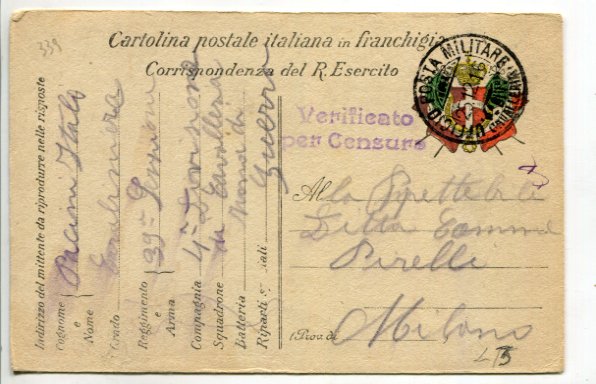 339
Cartolina postale italiana in franchigia
Corrispondenza del R. Esercito
POSTA MILITARE
Verificato
per Censura
Indirizzo del mittente da riprodurre nelle risposte
Cognome e Nome Pacini Italo
Grado
Reggimento e Arma 39°
Compagnia 4ª Divisione
Squadrone di Cavalleria
Batteria Zona di
Riparti speciali Guerra
Alla Spettabile
Ditta
Pirelli
(Prov. di Milano